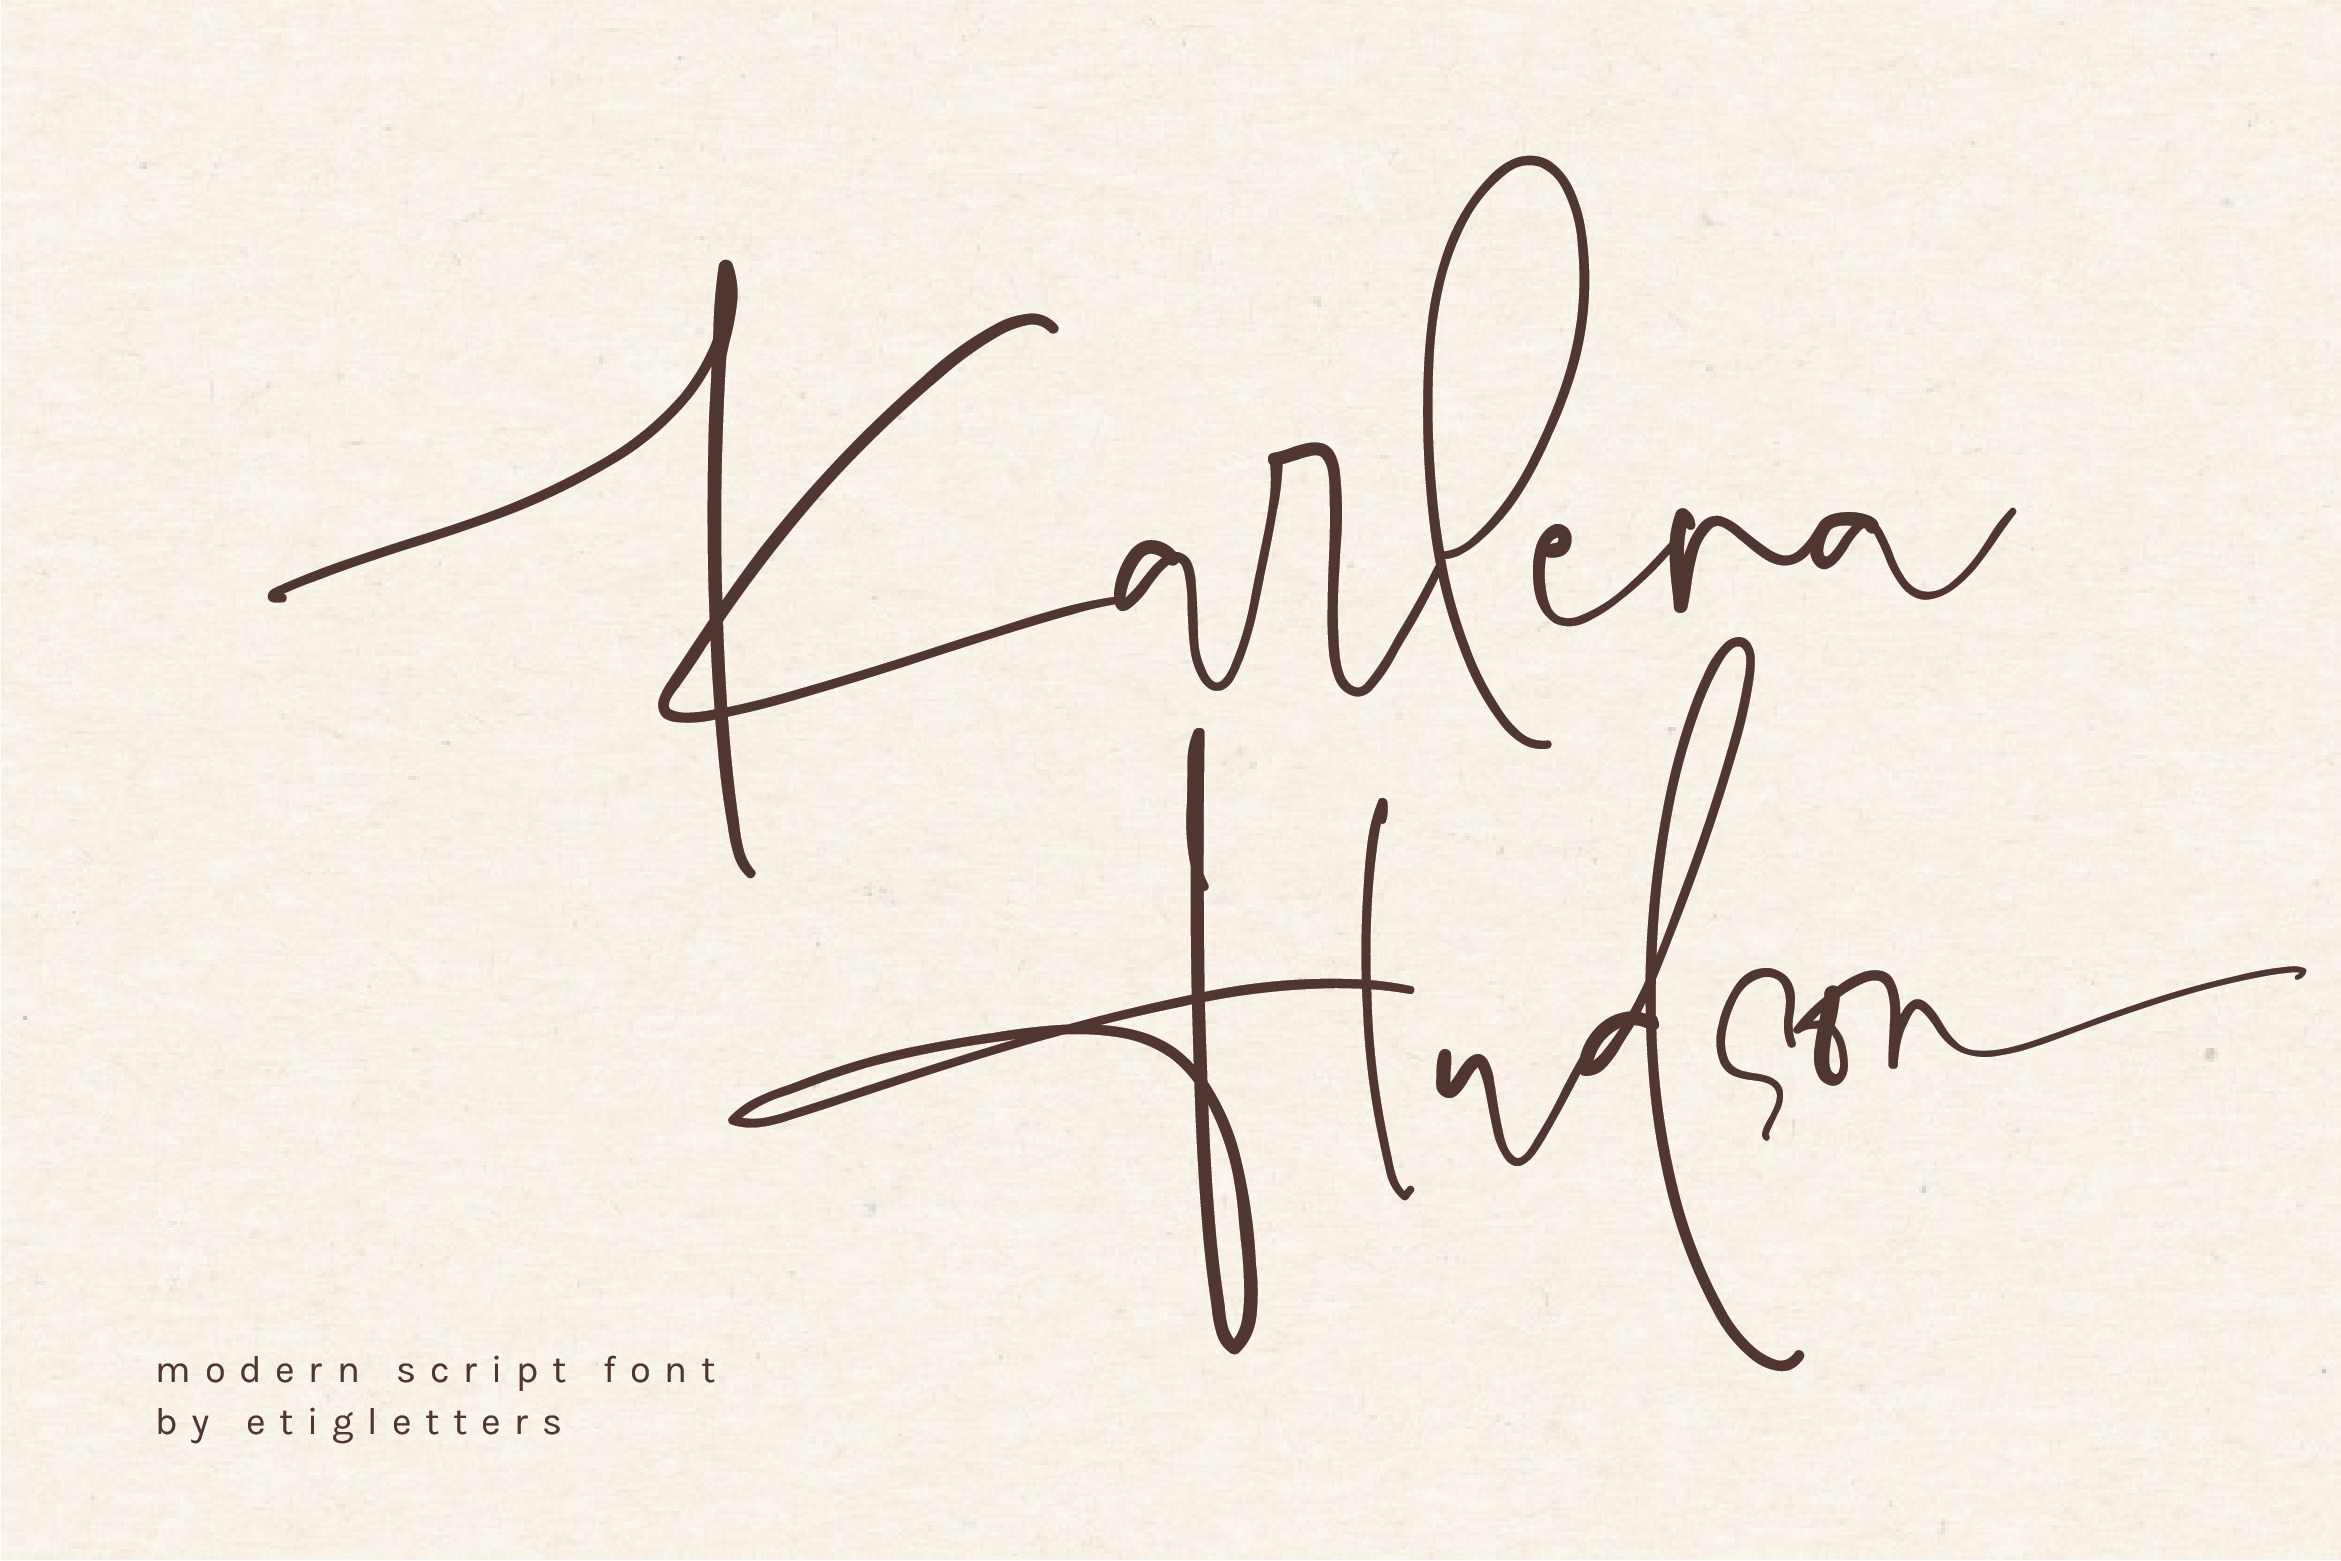 Karlena
Hudson
modern script font
by etigletters